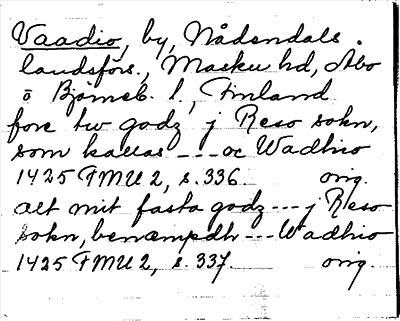 Vaadio, by, Nådendals
landsförs., Masku hd, Åbo
o Björneb. l., Finland
fore tw godz j Reso sokn,
som kallas --- oc Wadhio
1425 FMU 2, s. 336. orig.
alt mit fasta godz --- j Reso
sokn, benæmpdh --- Wadhio
1425 FMU 2, s. 337. orig.